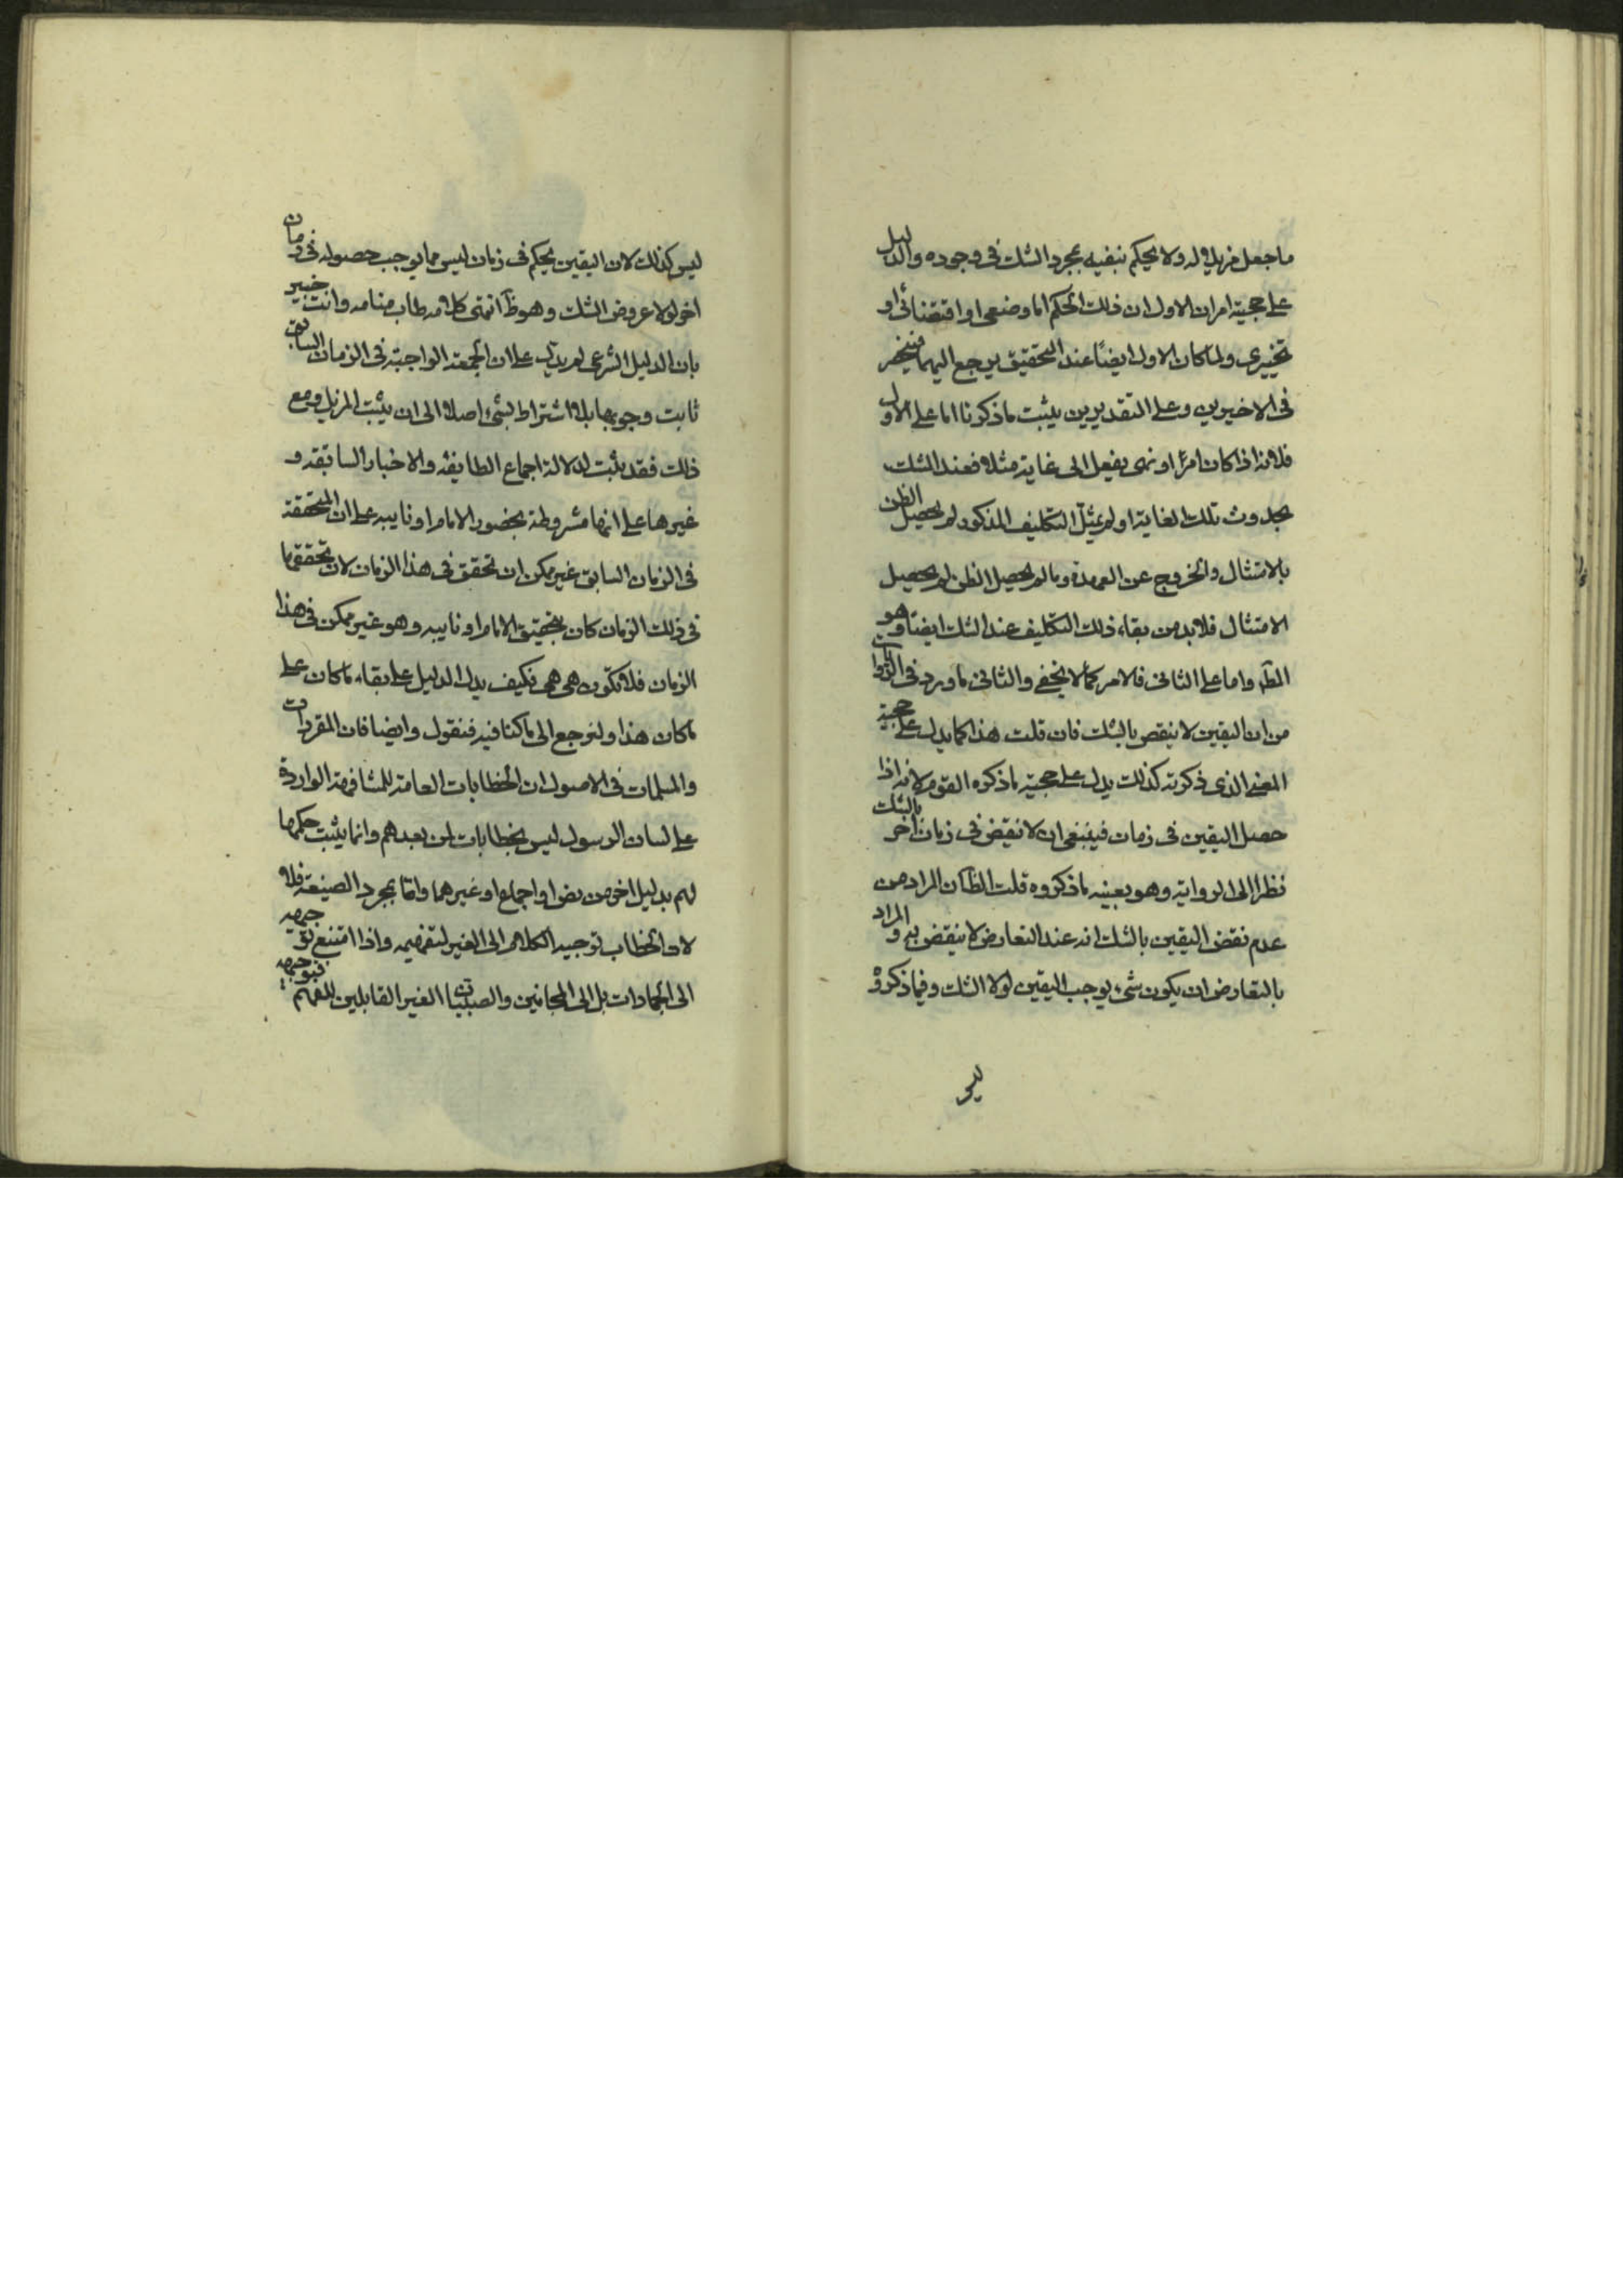 ما جعل مزيلا له ولا يحكم بنفيه بمجرد الشك في وجوده والدليل
على حجيته امران الاول ان ذلك الحكم اما وضعي او اقتضائي او
تخييري ولما كان الاول ايضًا عند التحقيق يرجع اليهما فينحصر
في الاخيرين وعلى التقديرين يثبت ما ذكرنا اما على الاول
فلانه اذا كان امرًا او نهى بفعل الى غاية مثلا فعند الشك
بحدوث تلك الغاية او لم يمتثل التكليف المذكور لم يحصل الظن
بالامتثال والخروج عن العهدة وما لم يحصل الظن لم يحصل
الامتثال فلابد من بقاء ذلك التكليف عند الشك ايضًا وهو
المط واما على الثاني فالامر كما لا يخفى والثاني ما ورد في الروايات
من ان اليقين لا ينقض بالشك فان قلت هذا كما يدل على حجية
المعنى الذي ذكرته كذلك يدل على حجية ما ذكره القوم لانه اذا
حصل اليقين في زمان فينبغي ان لا ينقض في زمان اخر بالشك
نظرا الى الرواية وهو بعينه ما ذكروه قلت الظ ان المراد من
عدم نقض اليقين بالشك انه عند التعارض لا ينقض به والمراد
بالتعارض ان يكون شيء يوجب اليقين لولا الشك وفيما ذكروه
ليس
ليس كذلك لان اليقين بحكم في زمان ليس مما يوجب حصوله في زمان
اخر لولا عروض الشك وهو ظ انتهى كلامه طاب منامه وانت خبير
بان الدليل الشرعي لم يدل على ان الجمعة الواجبة في الزمان السابق
ثابت وجوبها بلا اشتراط بشئ اصلا الى ان يثبت المزيل ومع
ذلك فقد يثبت لدلالة اجماع الطايفة والاخبار السابقة و
غيرها على انها مشروطة بحضور الامام او نايبه على ان المتحققة
في الزمان السابق غير ممكن ان تحقق في هذا الزمان لان تحققها
في ذلك الزمان كان بتحقيق الامام او نايبه وهو غير ممكن في هذا
الزمان فلا تكون هي هي فكيف يدل الدليل على بقاء ما كان على
ما كان هذا ولنرجع الى ما كنا فيه فنقول وايضا فان المقررات
والمسلمات في الاصول ان الخطابات العامة للمشافهة الواردة
على لسان الرسول ليس بخطابات لمن بعدهم وانما يثبت حكمها
لهم بدليل اخر من نص او اجماع او غيرهما واما بمجرد الصيغة فلا
لان الخطاب توجيه الكلام الى الغير لتفهيمه واذا امتنع توجيهه
الى الجمادات بل الى المجانين والصبيان الغير القابلين للفهم فتوجيهه